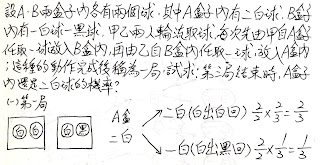 設A、B兩盒子內各有兩個球,其中A盒子內有二白球,B盒子
內有一白球一黑球,甲乙兩人輪流取球,每次先由甲自A盒
任取一球放入B盒內,再由乙自B盒內任取一球,放入A盒內
,這樣的動作完成後稱為一局,試求:第三局結束時,A盒子
內還是二白球的機率?
(一)第一局
白白 白黑 A盒 二白
二白(白出白回) 2/2×2/3=2/3
一白(白出黑回) 2/2×1/3=1/3